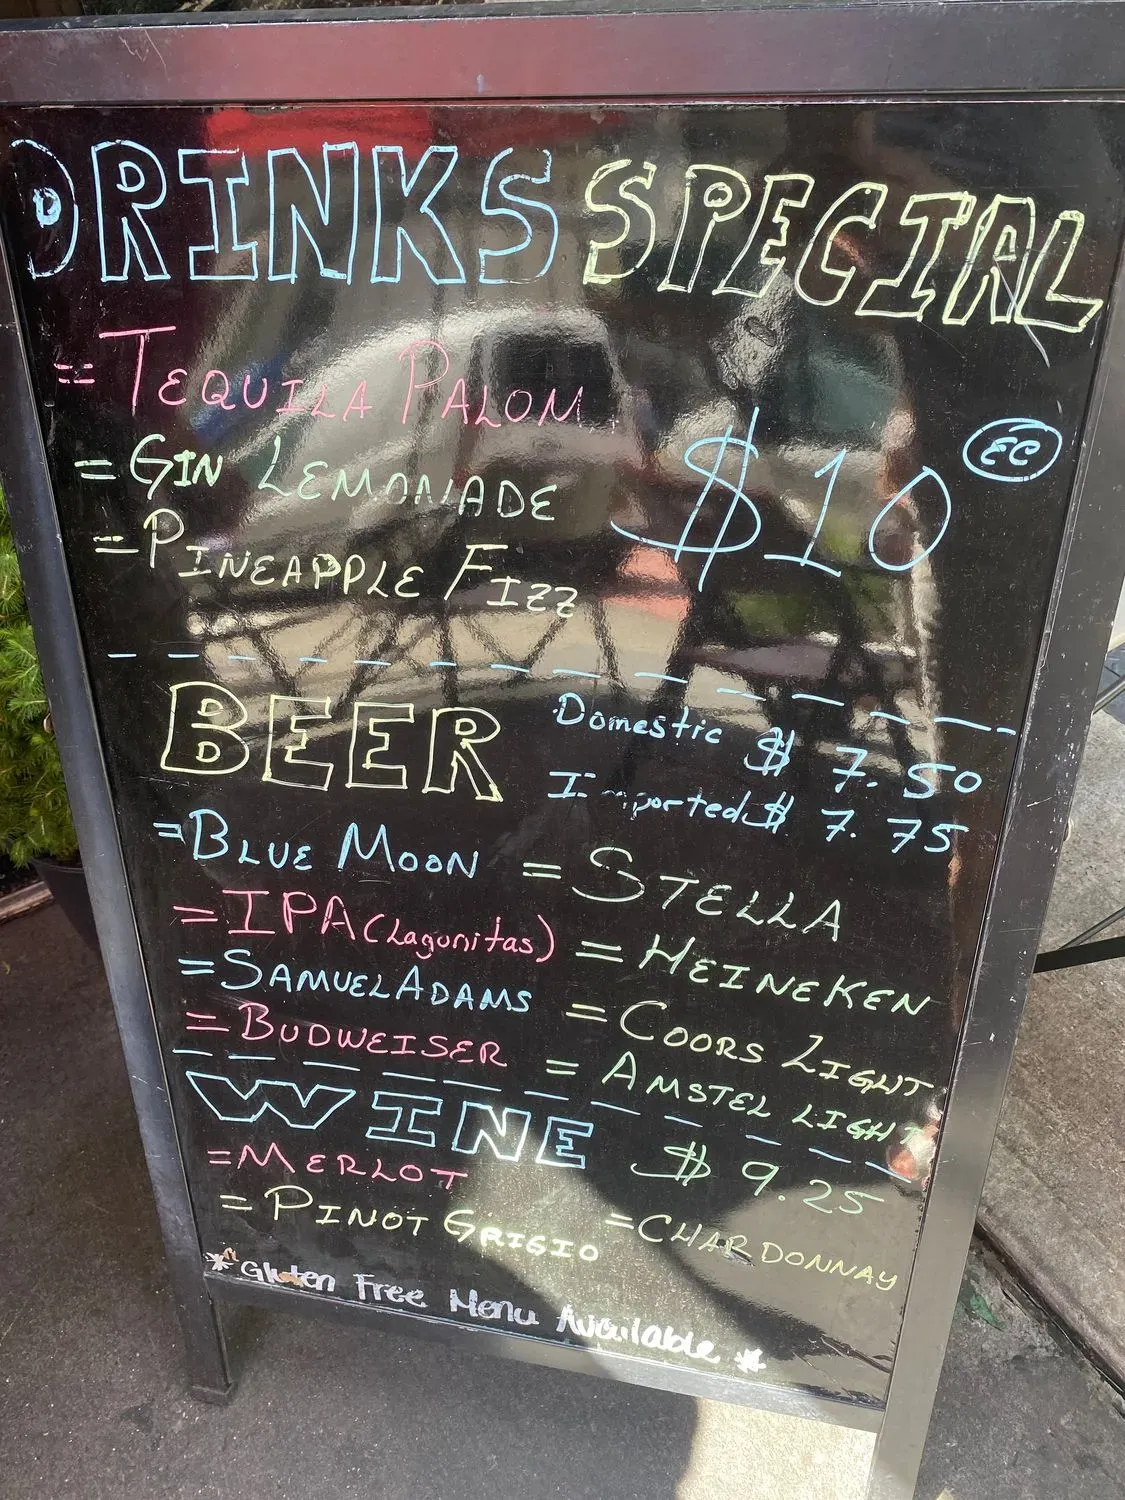 DRINKS SPECIAL
= TEQUILA PALOM
= GIN LEMONADE
= PINEAPPLE FIZZ
$10 EC
BEER
Domestic $ 7.50
Imported $ 7.75
= BLUE MOON = STELLA
= IPA (Lagunitas) = HEINEKEN
= SAMUEL ADAMS = COORS LIGHT
= BUDWEISER = AMSTEL LIGHT
WINE $ 9.25
= MERLOT
= PINOT GRIGIO = CHARDONNAY
* Gluten Free Menu Available *